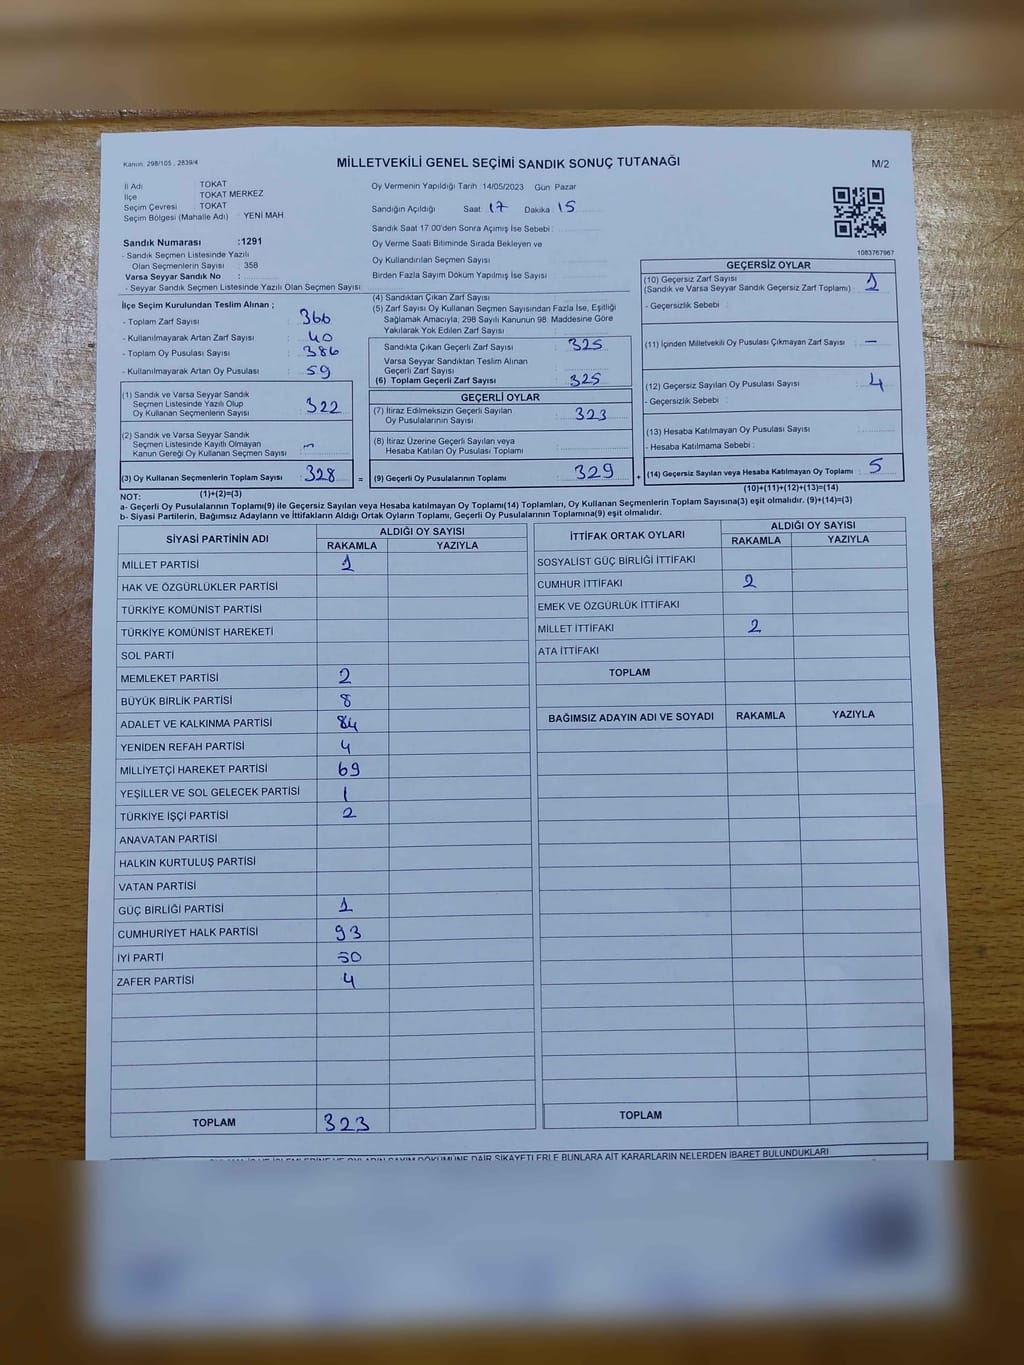 Kanun. 298/105 , 2839/4
MİLLETVEKİLİ GENEL SEÇİMİ SANDIK SONUÇ TUTANAĞI
M/2
İl Adı TOKAT
İlçe TOKAT MERKEZ
Seçim Çevresi TOKAT
Seçim Bölgesi (Mahalle Adı) : YENİ MAH.
Sandık Numarası :1291
- Sandık Seçmen Listesinde Yazılı
Olan Seçmenlerin Sayısı : 358
Varsa Seyyar Sandık No :
- Seyyar Sandık Seçmen Listesinde Yazılı Olan Seçmen Sayısı :
Oy Vermenin Yapıldığı Tarih :14/05/2023 Gün Pazar
Sandığın Açıldığı Saat: 17 Dakika : 15
Sandık Saat 17.00'den Sonra Açımış İse Sebebi :
Oy Verme Saati Bitiminde Sırada Bekleyen ve
Oy Kullandırılan Seçmen Sayısı :
Birden Fazla Sayım Döküm Yapılmış İse Sayısı :
1083767967
İlçe Seçim Kurulundan Teslim Alınan ;
- Toplam Zarf Sayısı : 366
- Kullanılmayarak Artan Zarf Sayısı : 40
- Toplam Oy Pusulası Sayısı : 386
- Kullanılmayarak Artan Oy Pusulası : 59
(1) Sandık ve Varsa Seyyar Sandık
Seçmen Listesinde Yazılı Olup
Oy Kullanan Seçmenlerin Sayısı : 322
(2) Sandık ve Varsa Seyyar Sandık
Seçmen Listesinde Kayıtlı Olmayan
Kanun Gereği Oy Kullanan Seçmen Sayısı :
(3) Oy Kullanan Seçmenlerin Toplam Sayısı : 328
(4) Sandıktan Çıkan Zarf Sayısı :
(5) Zarf Sayısı Oy Kullanan Seçmen Sayısından Fazla İse, Eşitliği
Sağlamak Amacıyla; 298 Sayılı Kanunun 98. Maddesine Göre
Yakılarak Yok Edilen Zarf Sayısı :
Sandıkta Çıkan Geçerli Zarf Sayısı : 325
Varsa Seyyar Sandıktan Teslim Alınan
Geçerli Zarf Sayısı :
(6) Toplam Geçerli Zarf Sayısı : 325
GEÇERLİ OYLAR
(7) İtiraz Edilmeksizin Geçerli Sayılan
Oy Pusulalarının Sayısı : 323
(8) İtiraz Üzerine Geçerli Sayılan veya
Hesaba Katılan Oy Pusulası Toplamı :
= (9) Geçerli Oy Pusulalarının Toplamı : 329
GEÇERSİZ OYLAR
(10) Geçersiz Zarf Sayısı
(Sandık ve Varsa Seyyar Sandık Geçersiz Zarf Toplamı) : 1
- Geçersizlik Sebebi :
(11) İçinden Milletvekili Oy Pusulası Çıkmayan Zarf Sayısı : —
(12) Geçersiz Sayılan Oy Pusulası Sayısı : 4
- Geçersizlik Sebebi :
(13) Hesaba Katılmayan Oy Pusulası Sayısı :
- Hesaba Katılmama Sebebi :
+ (14) Geçersiz Sayılan veya Hesaba Katılmayan Oy Toplamı : 5
NOT: (1)+(2)=(3)
(10)+(11)+(12)+(13)=(14)
a- Geçerli Oy Pusulalarının Toplamı(9) ile Geçersiz Sayılan veya Hesaba katılmayan Oy Toplamı(14) Toplamları, Oy Kullanan Seçmenlerin Toplam Sayısına(3) eşit olmalıdır. (9)+(14)=(3)
b- Siyasi Partilerin, Bağımsız Adayların ve İttifakların Aldığı Ortak Oyların Toplamı, Geçerli Oy Pusulalarının Toplamına(9) eşit olmalıdır.
SİYASİ PARTİNİN ADI ALDIĞI OY SAYISI
RAKAMLA YAZIYLA
MİLLET PARTİSİ 1
HAK VE ÖZGÜRLÜKLER PARTİSİ
TÜRKİYE KOMÜNİST PARTİSİ
TÜRKİYE KOMÜNİST HAREKETİ
SOL PARTİ
MEMLEKET PARTİSİ 2
BÜYÜK BİRLİK PARTİSİ 8
ADALET VE KALKINMA PARTİSİ 84
YENİDEN REFAH PARTİSİ 4
MİLLİYETÇİ HAREKET PARTİSİ 69
YEŞİLLER VE SOL GELECEK PARTİSİ 1
TÜRKİYE İŞÇİ PARTİSİ 2
ANAVATAN PARTİSİ
HALKIN KURTULUŞ PARTİSİ
VATAN PARTİSİ
GÜÇ BİRLİĞİ PARTİSİ 1
CUMHURİYET HALK PARTİSİ 93
İYİ PARTİ 50
ZAFER PARTİSİ 4
TOPLAM 323
İTTİFAK ORTAK OYLARI ALDIĞI OY SAYISI
RAKAMLA YAZIYLA
SOSYALİST GÜÇ BİRLİĞİ İTTİFAKI
CUMHUR İTTİFAKI 2
EMEK VE ÖZGÜRLÜK İTTİFAKI
MİLLET İTTİFAKI 2
ATA İTTİFAKI
TOPLAM
BAĞIMSIZ ADAYIN ADI VE SOYADI RAKAMLA YAZIYLA
TOPLAM
DÖKÜMÜNE DAİR ŞİKAYETLERLE BUNLARA AİT KARARLARIN NELERDEN İBARET BULUNDUKLARI